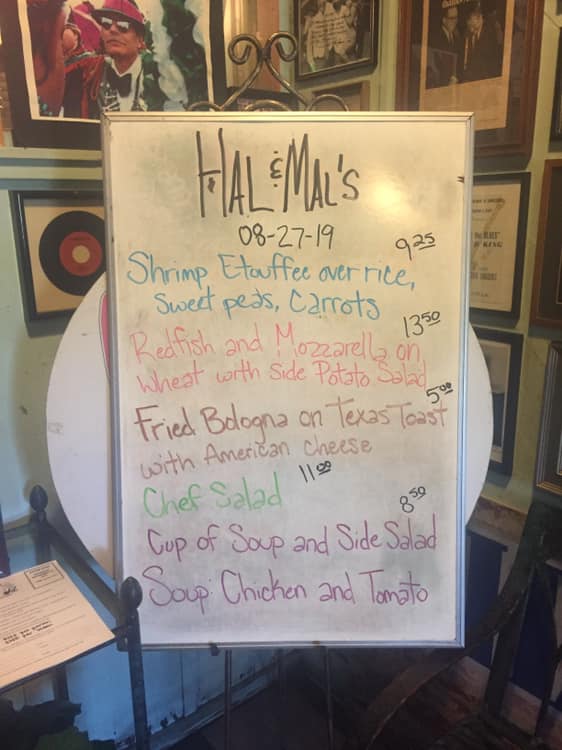 HAL & MAL'S
08-27-19
9.25
Shrimp Etouffee over rice,
Sweet peas, Carrots
13.50
Redfish and Mozzarella on
Wheat with Side Potato Salad
5.00
Fried Bologna on Texas Toast
with American Cheese
11.00
Chef Salad
8.50
Cup of Soup and Side Salad
Soup: Chicken and Tomato
KING